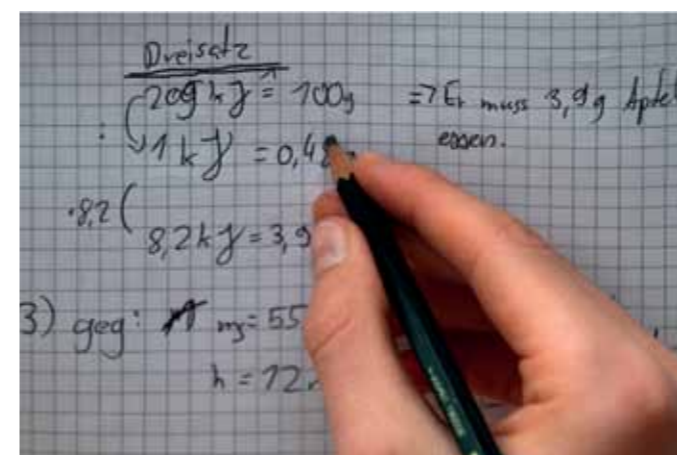 Dreisatz
209 kJ ≙ 100g => Er muss 3,9g Apfel
: 1 kJ = 0,48
essen.
·8,2
8,2 kJ = 3,9
3) geg: m = 55
h = 12